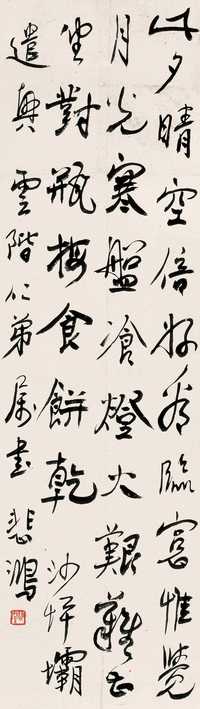 此夕晴空倍好看臨窗惟覺
月光寒盤飡燈火艱難甚
坐對瓶梅食餅乾沙坪壩
遣興雲階仁弟屬書悲鴻